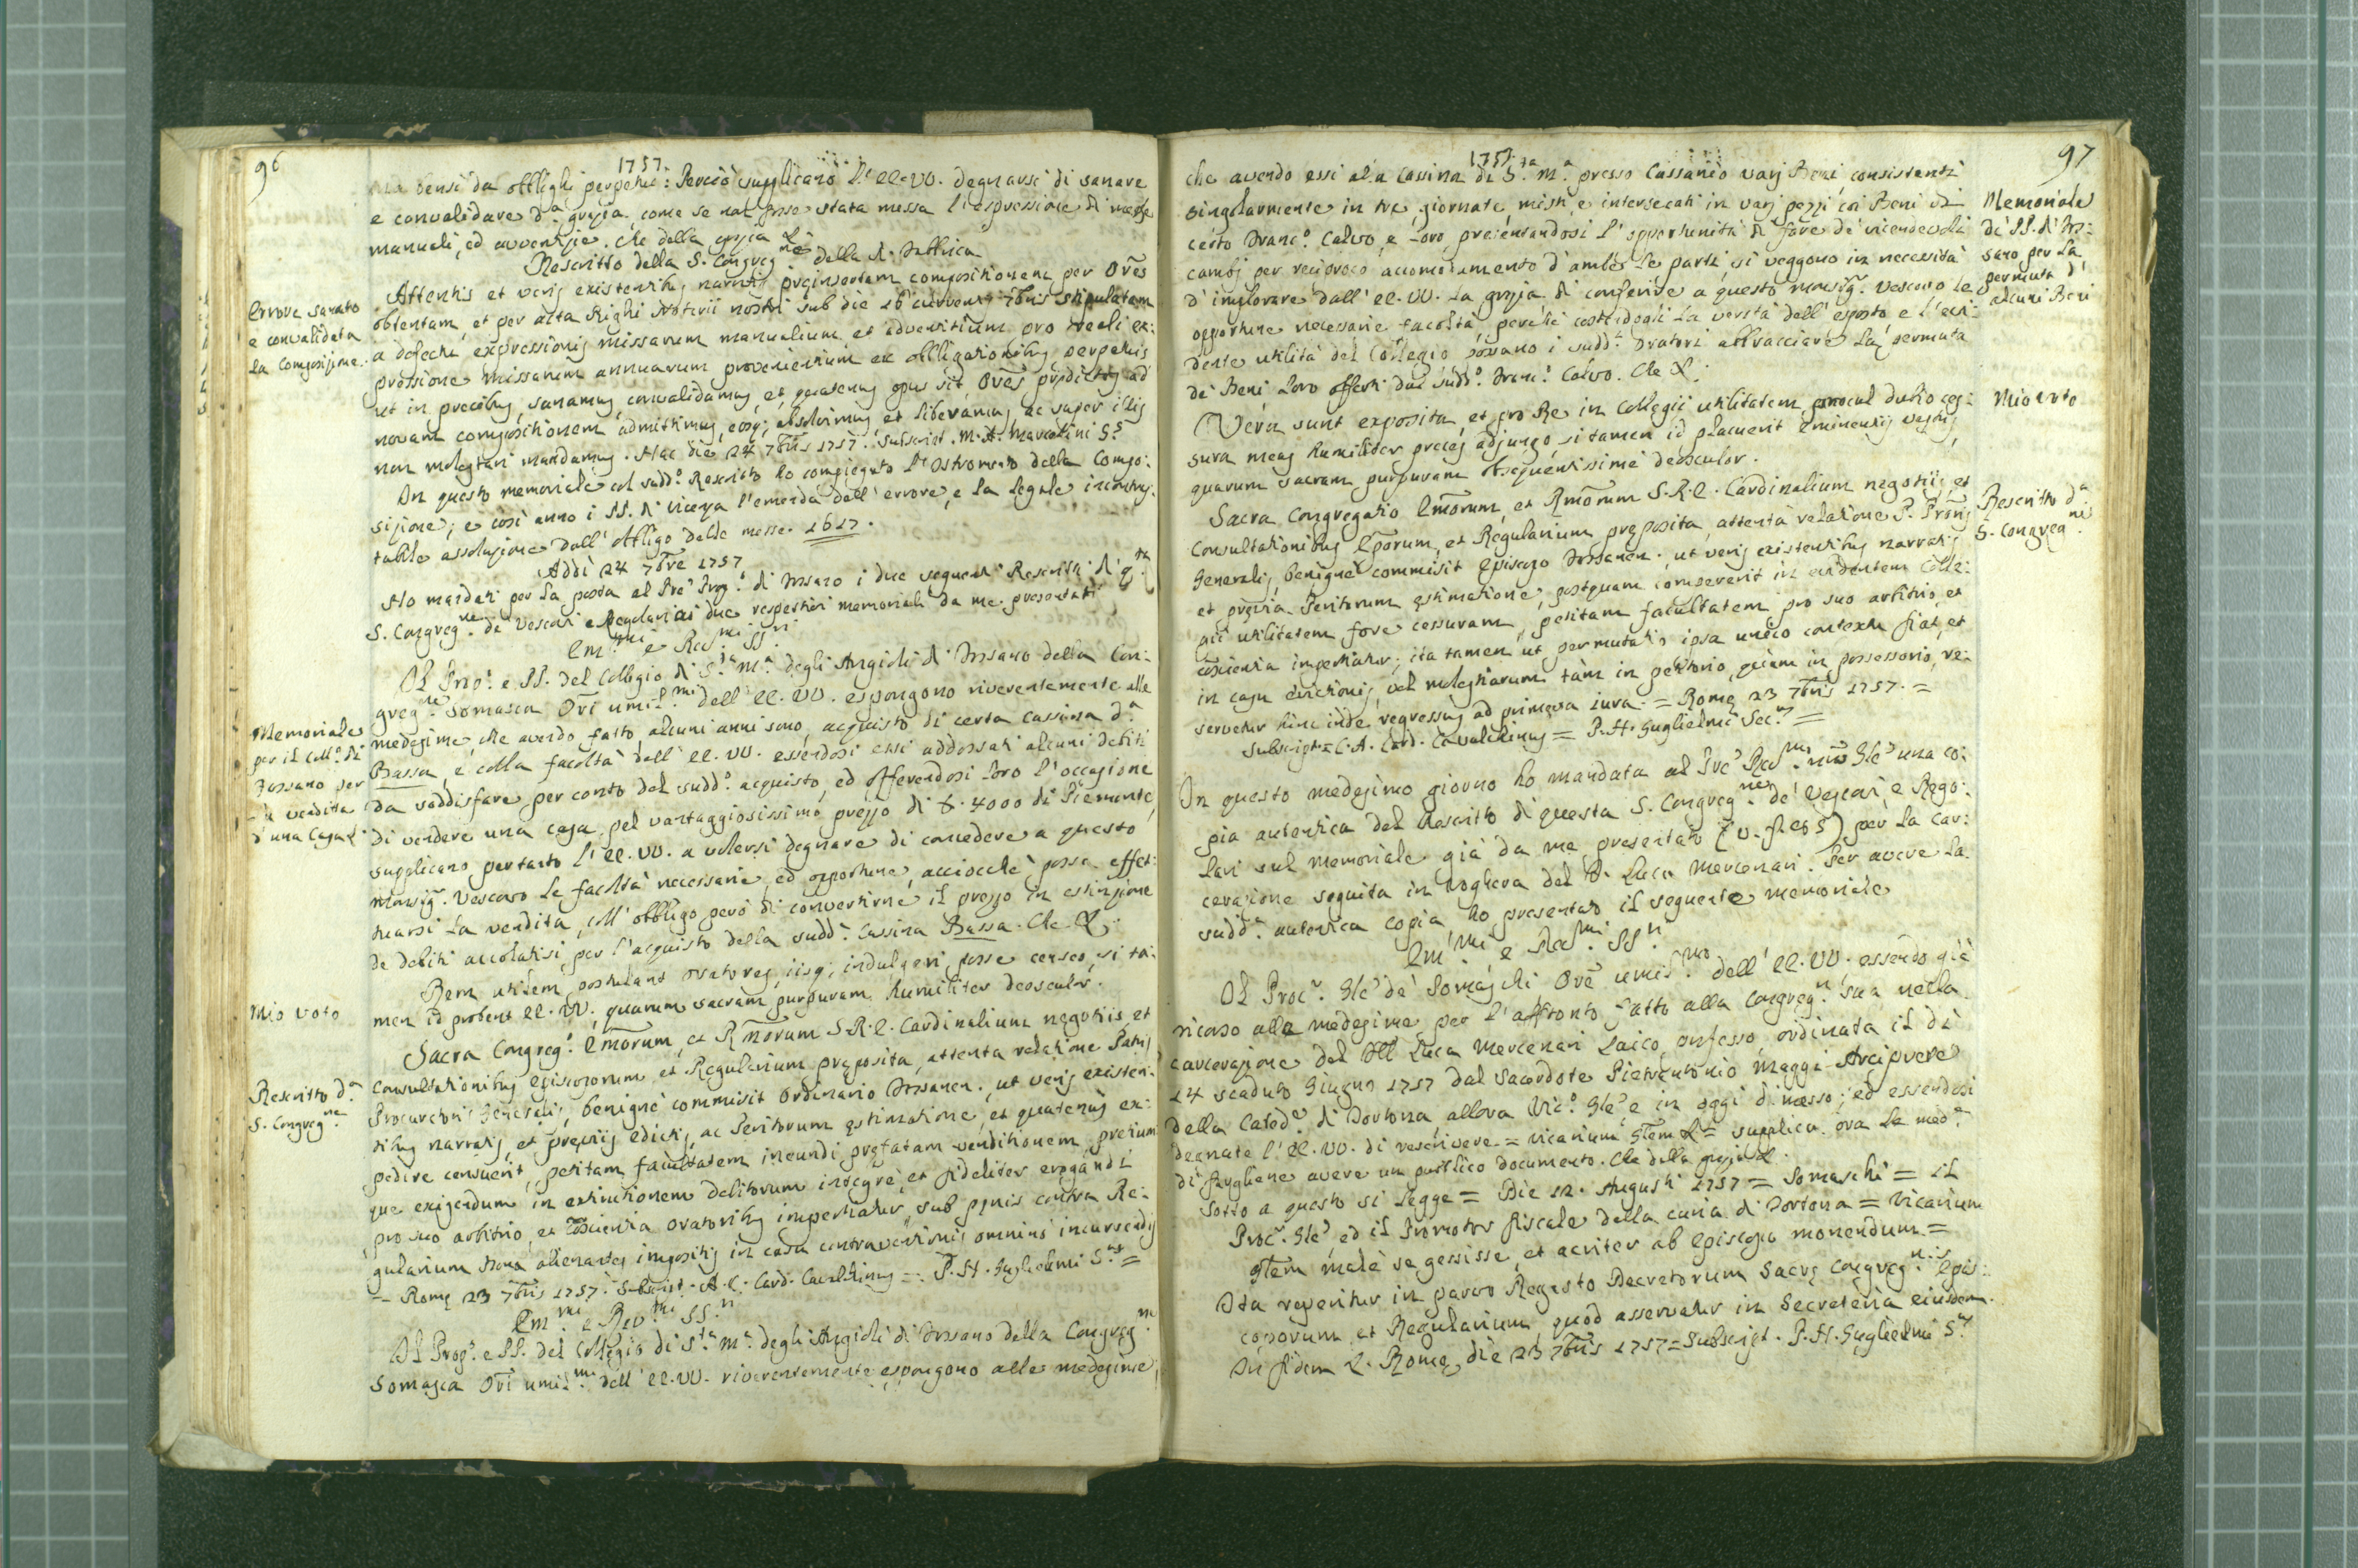 96
1757.
ma bensì da obblighi perpetui: Perciò supplicano l'EE.VV. degnarsi di sanare
e convalidare d.ª grazia come se non fosse stata messa l'espressione di messe
manuali, ed avventizie. Che della grazia &
Rescritto della S. Congreg.ne della R. Fabbrica
Errore sanato
e convalidata
la Composizione.
Attentis et veris existentibus narratis preinsertam compositionem per Ores
obtentam, et per acta Righi Notarii nostri sub die 16 currentis 7bris stipulatam
a defectu expressionis missarum manualium et adventitium pro reali ex:
pressione missarum annuarum provenientium ex obligationibus perpetuis
ut in precibus, sanamus, convalidamus, et quatenus opus sit, Ores predictos ad
novam compositionem admittimus, eosq; absolvimus, et liberamus ac super illis
non molestari mandamus. Hac die 24 7bris 1757. Subscript. M. A. Marcolini S.s
In questo memoriale col sudd.º Rescritto ho compiegato l'Istromento della Compo:
sizione; e così anno i PP. di Vicenza l'emenda dell'errore, e la legale incontras:
tabile assoluzione dall'obbligo delle messe 1617.
Addi 24 7bre 1757
Ho mandati per la posta al Pre Prep.º di Fossano i due seguenti Rescritti di q.ta
S. Congreg.ne de Vescovi e Regolari ai due respettivi memoriali da me presentati
Em.mi e Rev.mi SS.ri
Memoriale
per il Coll.º di
Fossano per
la vendita
d'una Casa &
Il Prep.º e PP. del Collegio di S.ta M.ª degli Angioli di Fossano della Con:
greg.ne Somasca Ori umil.mi dell'EE.VV. espongono riverentemente alle
medesime, che avendo fatto alcuni anni sono, acquisto di certa Cassina d.ª
Bassa, e colla facoltà dell'EE.VV. essendosi essi addossati alcuni debiti
da soddisfare per conto del sudd.º acquisto, ed offerendosi loro l'occasione
di vendere una casa pel vantaggiosissimo prezzo di £. 4000 di Piemonte,
supplicano pertanto l'EE.VV. a volersi degnare di concedere a questo
Monsig.r Vescovo le facoltà necessarie, ed opportune, acciocchè possa effet:
tuarsi la vendita, coll'obbligo però di convertirne il prezzo in estinzione
de debiti accollatisi per l'acquisto della sudd.ª Cassina Bassa. Che &
Mio voto
Rem utilem postulant oratores, iisq; indulgeri posse censeo, si ta:
men id probent EE.VV. quarum sacram purpuram humiliter deosculor.
Rescritto d.ª
S. Congreg.ne
Sacra Congreg.º Emorum, et Rmorum S.R.E. Cardinalium negotiis et
Consultationibus Episcoporum et Regularium preposita, attenta relatione Patris
Procuratoris Generalis, benigne commisit Ordinario Fossanen. ut veris existen:
tibus narratis, et previis edictis, ac Peritorum estimatione, et quatenus ex:
pedire censuerit, petitam facultatem ineundi prefatam venditionem, pretium
que exigendum in extinctionem debitorum integre, et fideliter erogandi
pro suo arbitrio, et Conscientia oratoribus impertiatur, sub penis contra Re:
gularium bona alienantes impositis in casu contraventionis omnino incurrendis
= Rome 23 7bris 1757. Subscript. A. C. Card. Cavalchinus = P. H. Guglielmi S.us =
Em.mi e Rev.mi SS.ri
Il Prep.º e PP. del Collegio di S.ta M.ª degli Angioli di Fossano della Congreg.ne
Somasca Ori umil.mi dell'EE.VV. riverentemente espongono alle medesime,
97
1757.
che avendo essi alla Cassina di S.ta M.ª presso Cassanio varj Beni consistenti
singolarmente in tre giornate, misti, e intersecati in varj pezzi coi Beni di
certo Franc.º Calvo, e loro presentandosi l'opportunità di fare de vicendevoli
cambj per reciproco accomodamento d'ambe le parti si veggono in necessità
d'implorare dall'EE.VV. la grazia di conferire a questo Monsig.r Vescovo le
opportune necessarie facoltà, perchè costandogli la verità dell'esposto e l'evi:
dente utilità del Collegio possano i sudd.i Oratori abbracciare la permuta
de Beni loro offerti dal sudd.º Franc.º Calvo. Che &.
Memoriale
di PP. di Fos:
sano per la
permuta d'
alcuni Beni
Mio voto
Vera sunt exposita, et pro Re in Collegii utilitatem procul dubio ces:
sura meas humiliter preces adjungo, si tamen id placuerit Eminentiis vestris,
quarum sacram purpuram obsequentissime deosculor.
Rescritto d.ª
S. Congreg.ne
Sacra Congregatio Emorum, et Rmorum S.R.E. Cardinalium negotiis, et
Consultationibus Eporum, et Regularium preposita, attenta relatione P. Pròris
Generalis, benigne commisit Episcopo Fossanen. ut veris existentibus narratis
et previa Peritorum estimatione, postquam compererit in evidentem Colle:
gii utilitatem fore cessuram, petitam facultatem pro suo arbitrio, et
conscientia impertiatur; ita tamen ut permutatio ipsa unico contextu fiat, et
in casu evictionis, vel molestiarum tam in petitorio, quam in possessorio, re:
servetur hinc inde regressus ad primeva iura = Rome 23 7bris 1757. =
Subscript. = C. A. Card. Cavalchinus = P. H. Guglielmi Sec.us =
In questo medesimo giorno ho mandata al Pre Rev.mo nro Gle una co:
pia autentica del Rescritto di questa S. Congreg.ne de' Vescovi, e Rego:
lari sul memoriale già da me presentato per la Car:
cerazione seguita in Voghera del F. Luca Mercenari. Per avere la
sudd.ª autentica copia, ho presentato il seguente memoriale
Em.mi e Rev.mi SS.ri
Il Proc.r Gle de' Somaschi Ore umil.mo dell'EE.VV. essendo già
ricorso alle medesime per l'affronto fatto alla Congreg.n sua nella
carcerazione del Luca Mercenari Laico professo, ordinata il dì
24 scaduto Giugno 1757 dal Sacerdote Pietrantonio Maggi Arciprete
della Cated.e di Tortona, allora Vic.º Gle e in oggi dimesso; ed essendosi
degnate l'EE.VV. di rescrivere = Vicarium Glem & = supplica ora le med.e
di fargliene avere un pubblico documento. Che della grazia &.
Sotto a questo si legge = Die 12. Augusti 1757 = Somaschi = Il
Proc.r Gle, ed il Promotor fiscale della curia di Tortona = Vicarium
Glem male se gessisse, et acriter ab Episcopo monendum =
Ita reperitur in parvo Regesto Decretorum Sacre Congreg.nis Epis:
coporum et Regularium quod asservatur in Secreteria eiusdem.
In fidem &. Rome, die 23 7bris 1757 = Subscript. P. H. Guglielmi S.us